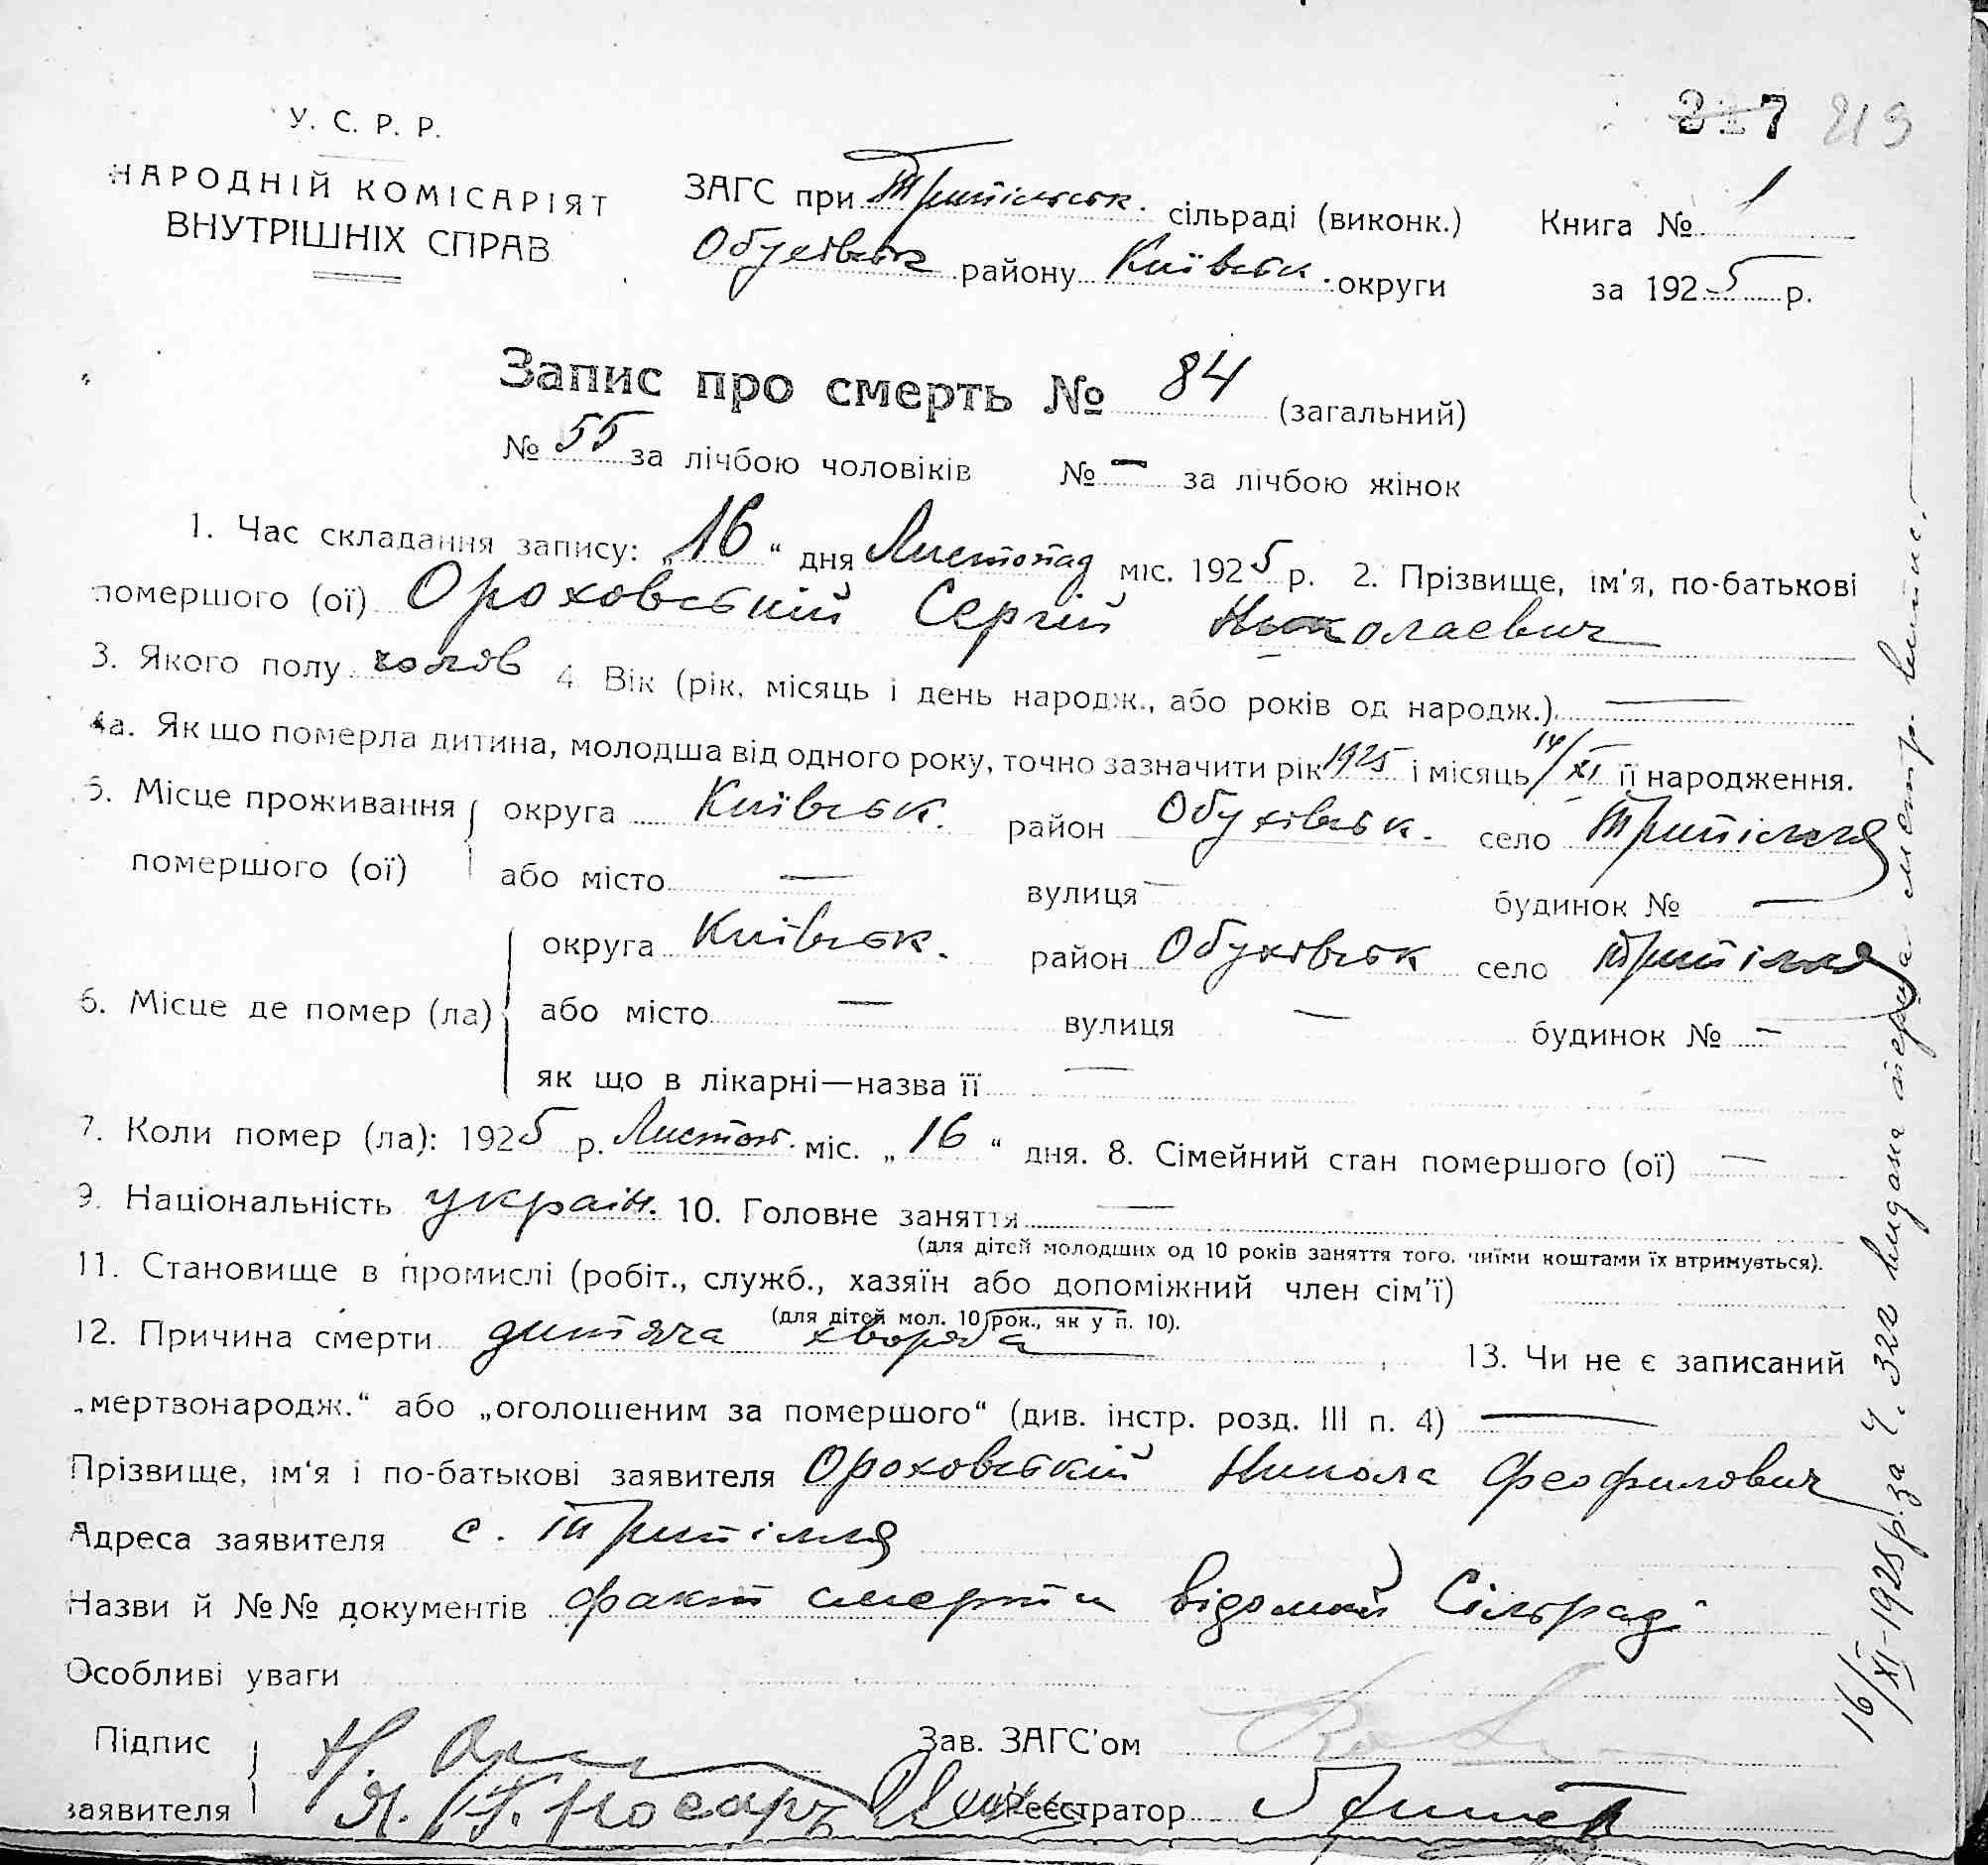 217 219
У. С. Р. Р.
НАРОДНІЙ КОМІСАРІЯТ
ВНУТРІШНІХ СПРАВ
ЗАГС при Трипільськ. сільраді (виконк.)
Обухівськ району Київськ. округи
Книга № 1
за 1925 р.
Запис про смерть № 84 (загальний)
№ 55 за лічбою чоловіків № — за лічбою жінок
1. Час складання запису: „16“ дня Листопад міс. 1925 р. 2. Прізвище, ім'я, по-батькові
помершого (ої) Ороховській Сергій Николаевич
3. Якого полу чолов 4. Вік (рік, місяць і день народж., або років од народж.) —
4а. Як що померла дитина, молодша від одного року, точно зазначити рік 1925 і місяць 14/XI її народження.
5. Місце проживання округа Київськ. район Обухівськ. село Трипілля
помершого (ої) або місто — вулиця — будинок № —
округа Київськ. район Обухівськ село Трипілля
6. Місце де помер (ла) або місто — вулиця — будинок № —
як що в лікарні—назва її —
7. Коли помер (ла): 1925 р. Листоп. міс. „16“ дня. 8. Сімейний стан помершого (ої) —
9. Національність україн. 10. Головне заняття —
(для дітей молодших од 10 років заняття того, чиїми коштами їх втримується).
11. Становище в промислі (робіт., служб., хазяїн або допоміжний член сім'ї)
(для дітей мол. 10 рок., як у п. 10).
12. Причина смерти дитяча хвороба 13. Чи не є записаний
„мертвонародж.“ або „оголошеним за помершого“ (див. інстр. розд. III п. 4) —
Прізвище, ім'я і по-батькові заявителя Ороховській Никола Феофилович
Адреса заявителя с. Трипілля
Назви й №№ документів факт смерти відомий Сільраді
Особливі уваги
Підпис Зав. ЗАГС'ом
заявителя Носарь Реєстратор
16/XI-1925 р. за Ч. 322 видана